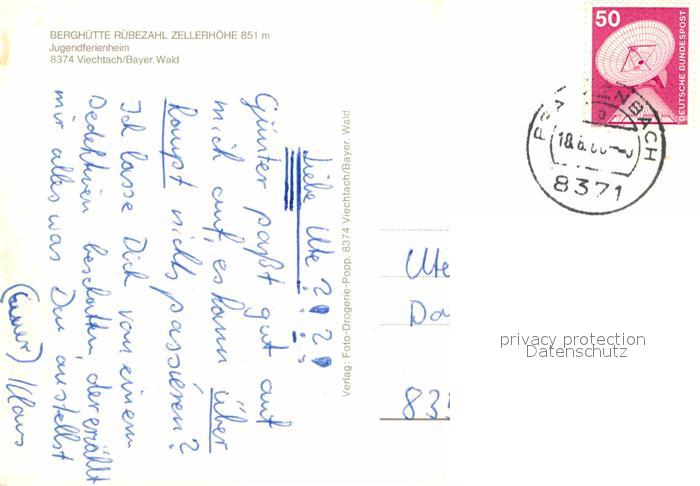 BERGHÜTTE RÜBEZAHL ZELLERHÖHE 851 m
Jugendferienheim
8374 Viechtach/Bayer. Wald
Liebe Ute ?! ?!
Günter paßt gut auf
mich auf, es kann über
haupt nichts passieren?
Ich lasse Dich von einem
Dedektiven beschatten, der erzählt
mir alles was Du anstellst
Klaus
Verlag: Foto-Drogerie-Popp, 8374 Viechtach/Bayer. Wald
50
DEUTSCHE BUNDESPOST
8371
Ute
Da
835
privacy protection
Datenschutz